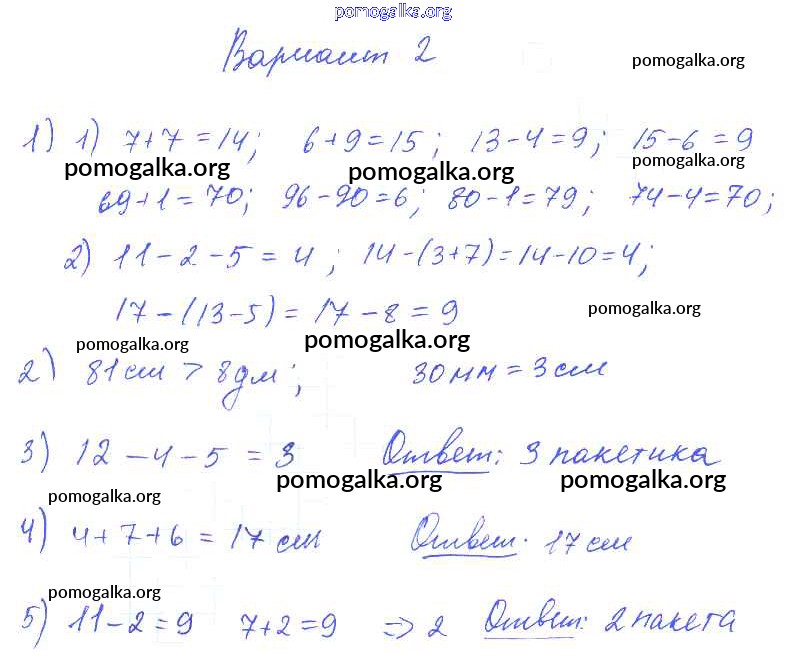 pomogalka.org
Вариант 2
pomogalka.org
1) 1) 7+7=14; 6+9=15; 13-4=9; 15-6=9
pomogalka.org pomogalka.org pomogalka.org
69+1=70; 96-90=6; 80-1=79; 74-4=70;
2) 11-2-5=4; 14-(3+7)=14-10=4;
17-(13-5)=17-8=9
pomogalka.org
pomogalka.org pomogalka.org
2) 81см > 8дм; 30мм=3см
3) 12-4-5=3 Ответ: 3 пакетика
pomogalka.org pomogalka.org pomogalka.org
4) 4+7+6=17см Ответ. 17см
pomogalka.org
5) 11-2=9 7+2=9 => 2 Ответ: 2 пакета